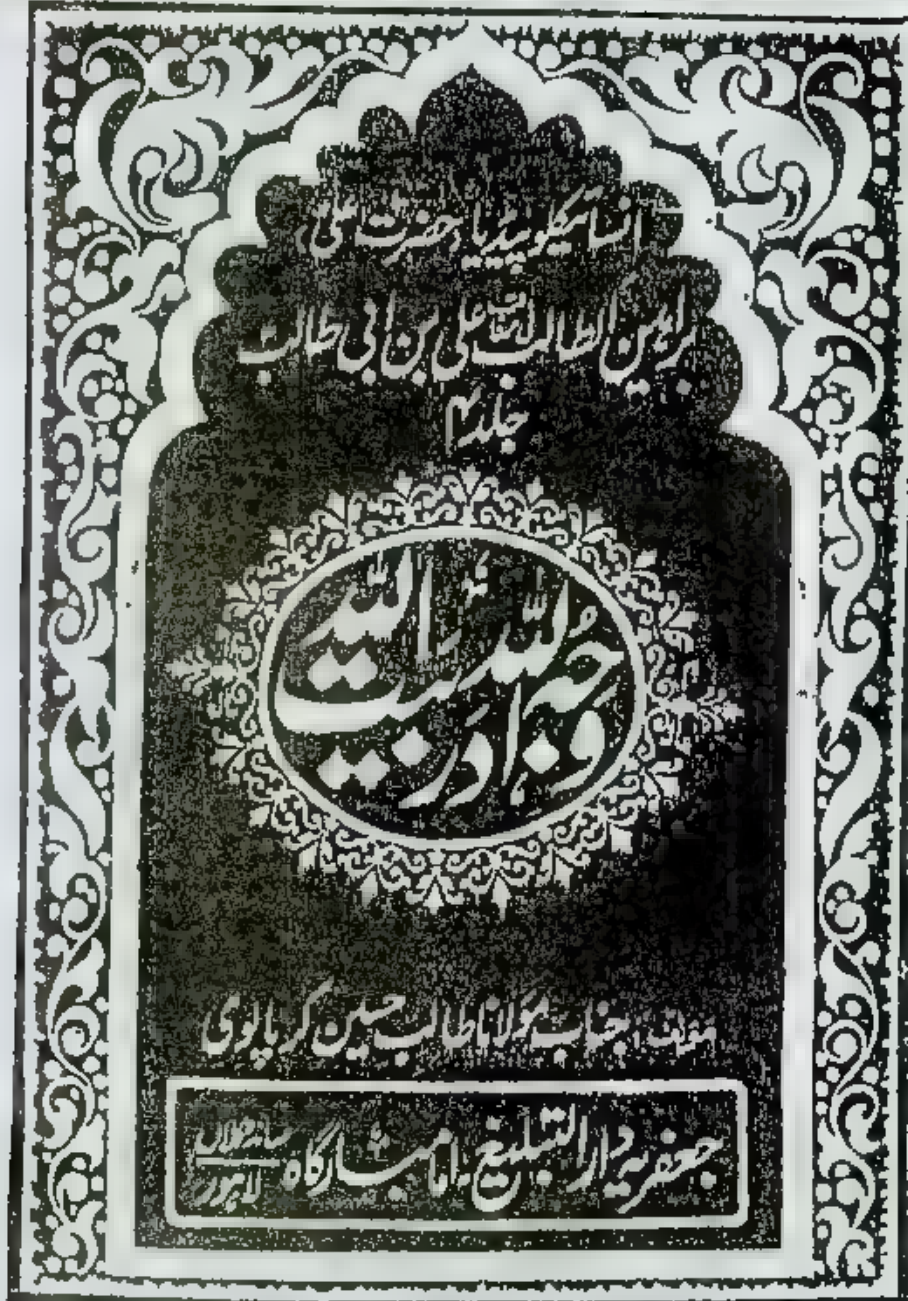 انسائیکلوپیڈیا حضرت علیؑ
براہین المطالب علی بن ابی طالب
جلد ۴
وجہُ اللہ اور بیت اللہ
مؤلف: جناب مولانا طالب حسین کرپالوی
جعفریہ دارالتبلیغ۔ امامبارگاہ
لاہور